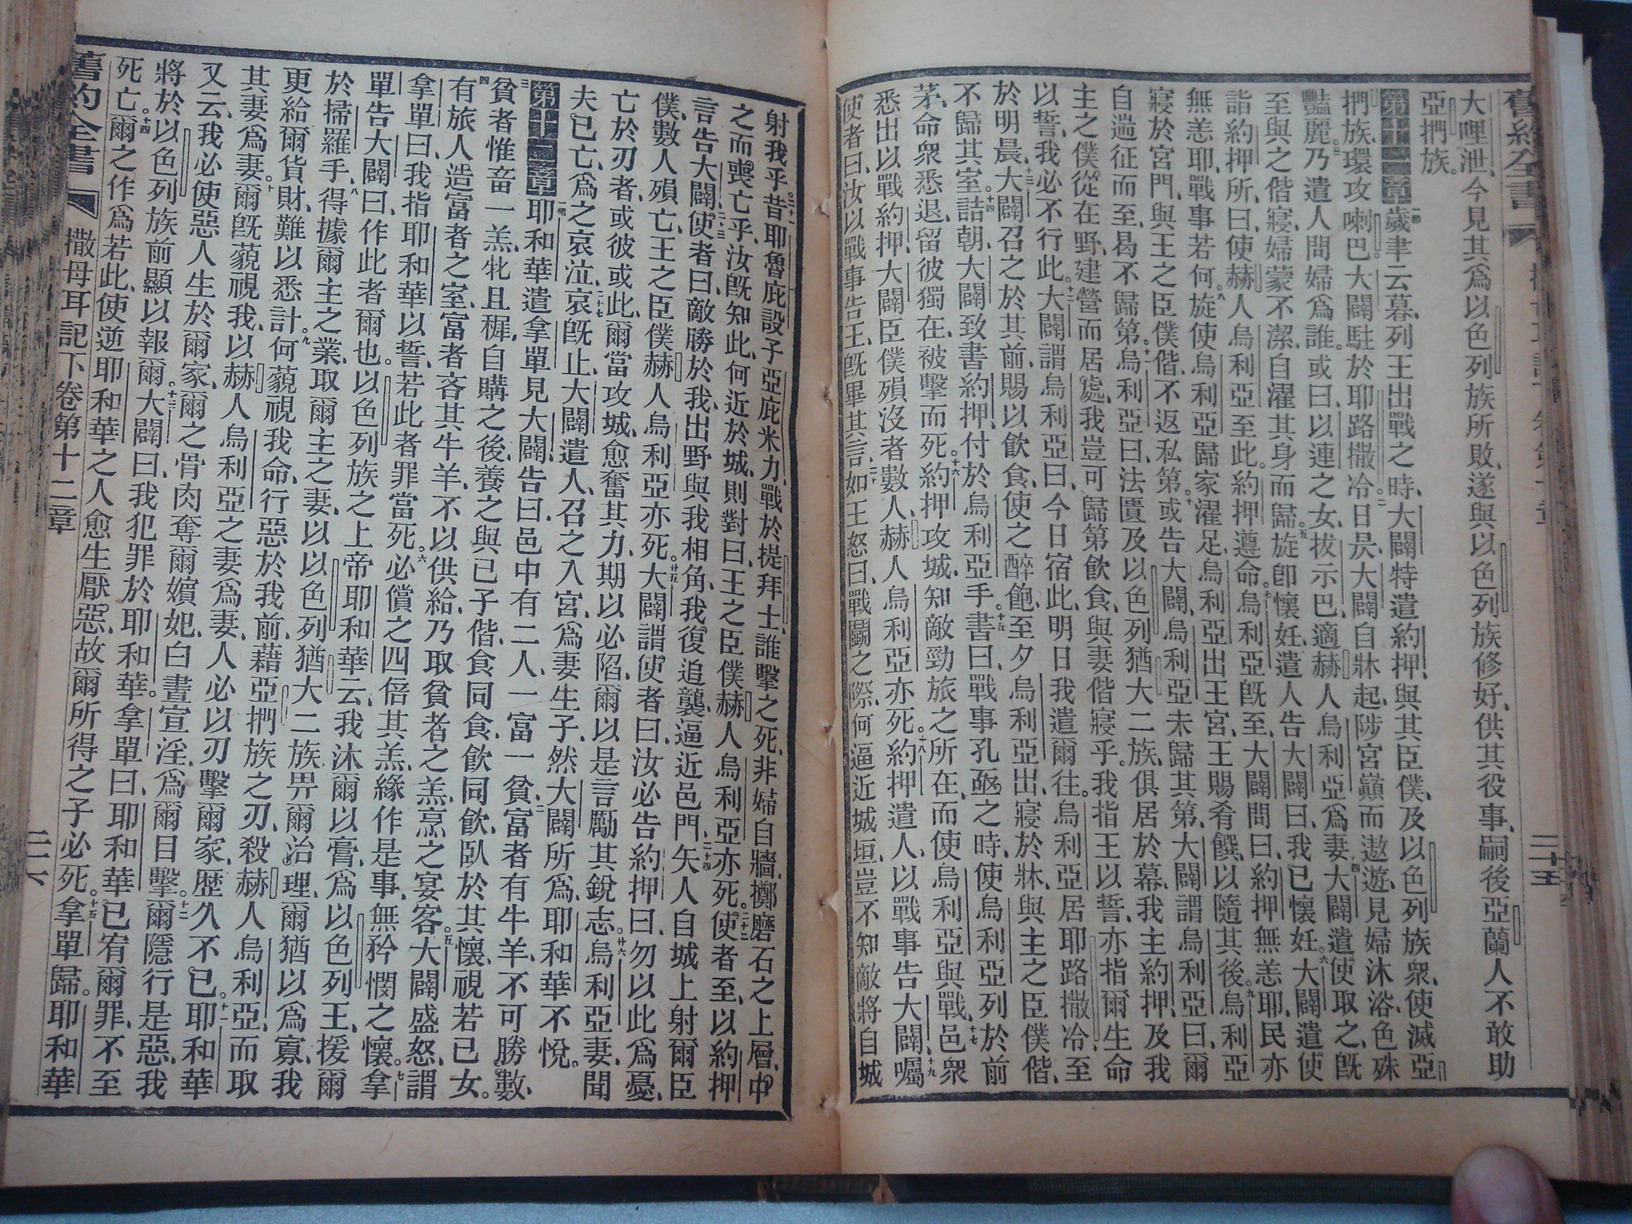 舊約全書
大哩泄今見其爲以色列族所敗遂與以色列族修好供其役事嗣後亞蘭人不敢助
亞捫族
第十一章一節歲聿云暮列王出戰之時大闢特遣約押與其臣僕及以色列族衆使滅亞
捫族環攻喇巴大闢駐於耶路撒冷二日昃大闢自牀起陟宮巔而遨遊見婦沐浴色殊
豔麗三乃遣人問婦爲誰或曰以連之女拔示巴適赫人烏利亞爲妻四大闢遣使取之旣
至與之偕寢婦蒙不潔自濯其身而歸五旋卽懷妊遣人告大闢曰我已懷妊六大闢遣使
詣約押所曰使赫人烏利亞至此約押遵命七烏利亞旣至大闢問曰約押無恙耶民亦
無恙耶戰事若何八旋使烏利亞歸家濯足烏利亞出王宮王賜肴饌以隨其後九烏利亞
寢於宮門與王之臣僕偕不返私第十或告大闢烏利亞未歸其第大闢謂烏利亞曰爾
自遄征而至曷不歸第十一烏利亞曰法匱及以色列猶大二族俱居於幕我主約押及我
主之僕從在野建營而居處我豈可歸第飲食與妻偕寢乎我指王以誓亦指爾生命
以誓我必不行此十二大闢謂烏利亞曰今日宿此明日我遣爾往烏利亞居耶路撒冷至
於明晨十三大闢召之於其前賜以飲食使之醉飽至夕烏利亞出寢於牀與主之臣僕偕
不歸其室十四詰朝大闢致書約押付於烏利亞手十五書曰戰事孔亟之時使烏利亞列於前
茅命衆悉退留彼獨在被擊而死十六約押攻城知敵勁旅之所在而使烏利亞與戰十七邑衆
悉出以戰約押大闢臣僕殞沒者數人赫人烏利亞亦死十八約押遣人以戰事告大闢十九囑
使者曰汝以戰事告王旣畢其言二十如王怒曰戰鬭之際何逼近城垣豈不知敵將自城
射我乎二十一昔耶魯庇設子亞庇米力戰於提拜士誰擊之死非婦自牆擲磨石之上層中
之而喪亡乎汝旣知此何近於城則對曰王之臣僕赫人烏利亞亦死二十二使者至以約押
言告大闢二十三使者曰敵勝於我出野與我相角我復追襲逼近邑門二十四矢人自城上射爾臣
僕數人殞亡王之臣僕赫人烏利亞亦死廿五大闢謂使者曰汝必告約押曰勿以此爲憂
亡於刃者或彼或此爾當攻城愈奮其力期以必陷爾以是言勵其銳志廿六烏利亞妻聞
夫已亡爲之哀泣二十七哀旣止大闢遣人召之入宮爲妻生子然大闢所爲耶和華不悅
第十二章耶和華遣拿單見大闢告曰邑中有二人一富一貧二富者有牛羊不可勝數
三貧者惟畜一羔牝且穉自購之後養之與己子偕食同食飲同飲臥於其懷視若己女
四有旅人造富者之室富者吝其牛羊不以供給乃取貧者之羔烹之宴客五大闢盛怒謂
拿單曰我指耶和華以誓若此者罪當死六必償之四倍其羔緣作是事無矜憫之懷七拿
單告大闢曰作此者爾也以色列族之上帝耶和華云我沐爾以膏爲以色列王援爾
於掃羅手八得據爾主之業取爾主之妻以以色列猶大二族畀爾治理爾猶以爲寡我
更給爾貨財難以悉計九何藐視我命行惡於我前藉亞捫族之刃殺赫人烏利亞而取
其妻爲妻十爾旣藐視我以赫人烏利亞之妻爲妻人必以刃擊爾家歷久不已十一耶和華
又云我必使惡人生於爾家爾之骨肉奪爾嬪妃白晝宣淫爲爾目擊十二爾隱行是惡我
將於以色列族前顯以報爾十三大闢曰我犯罪於耶和華拿單曰耶和華已宥爾罪不至
死亡十四爾之作爲若此使逆耶和華之人愈生厭惡故爾所得之子必死十五拿單歸耶和華
舊約全書 撒母耳記下卷第十二章